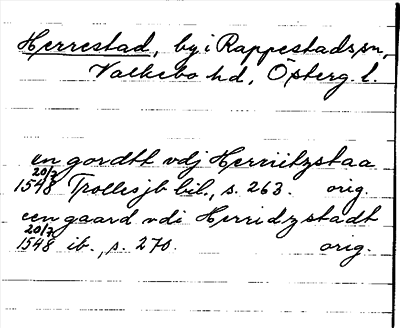 Herrestad, by i Rappestads sn,
Valkebo hd, Österg. l.
en gordtt vdj Herriitzstaa
20/7 1548 Trollesjb bil., s. 263. orig.
een gaard vdi Herridzstadt
20/7 1548 ib., s. 270. orig.